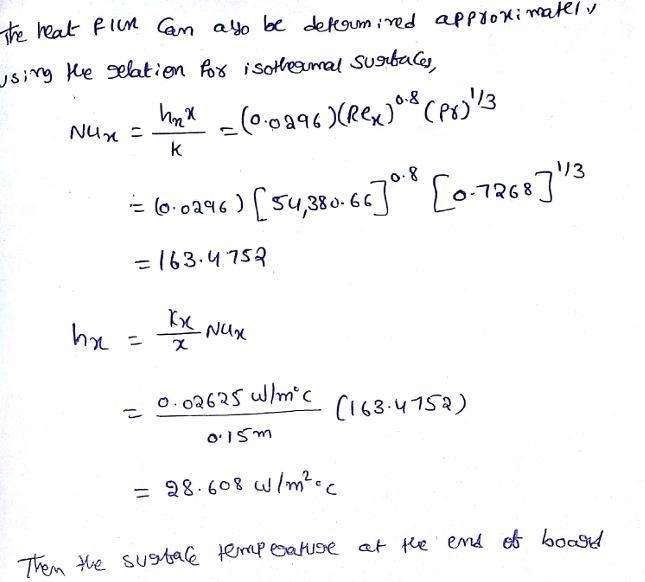 The heat flux Can also be determined approximately
using the relation for isothermal surfaces,
Nux = hxx / K = (0.0296)(Rex)^0.8 (Pr)^1/3
= (0.0296) [54,380.66]^0.8 [0.7268]^1/3
= 163.4752
hx = Kx / x Nux
= 0.02625 W/m°C / 0.15m (163.4752)
= 28.608 W/m²°C
Then the surface temperature at the end of board